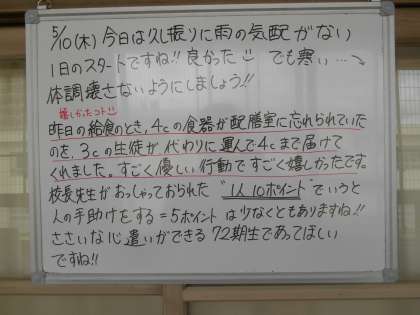 5/10(木) 今日は久し振りに雨の気配がない
1日のスタートですね!! 良かった でも寒い…→
体調壊さないようにしましょう!!
嬉しかったコト
昨日の給食のとき、4cの食器が配膳室に忘れられていた
のを、3cの生徒が代わりに運んで4cまで届けて
くれました。すごく優しい行動ですごく嬉しかったです。
校長先生がおっしゃっておられた "1人10ポイント" でいうと
人の手助けをする=5ポイントは少なくともありますね!!
ささいな心遣いができる72期生であってほしい
ですね!!